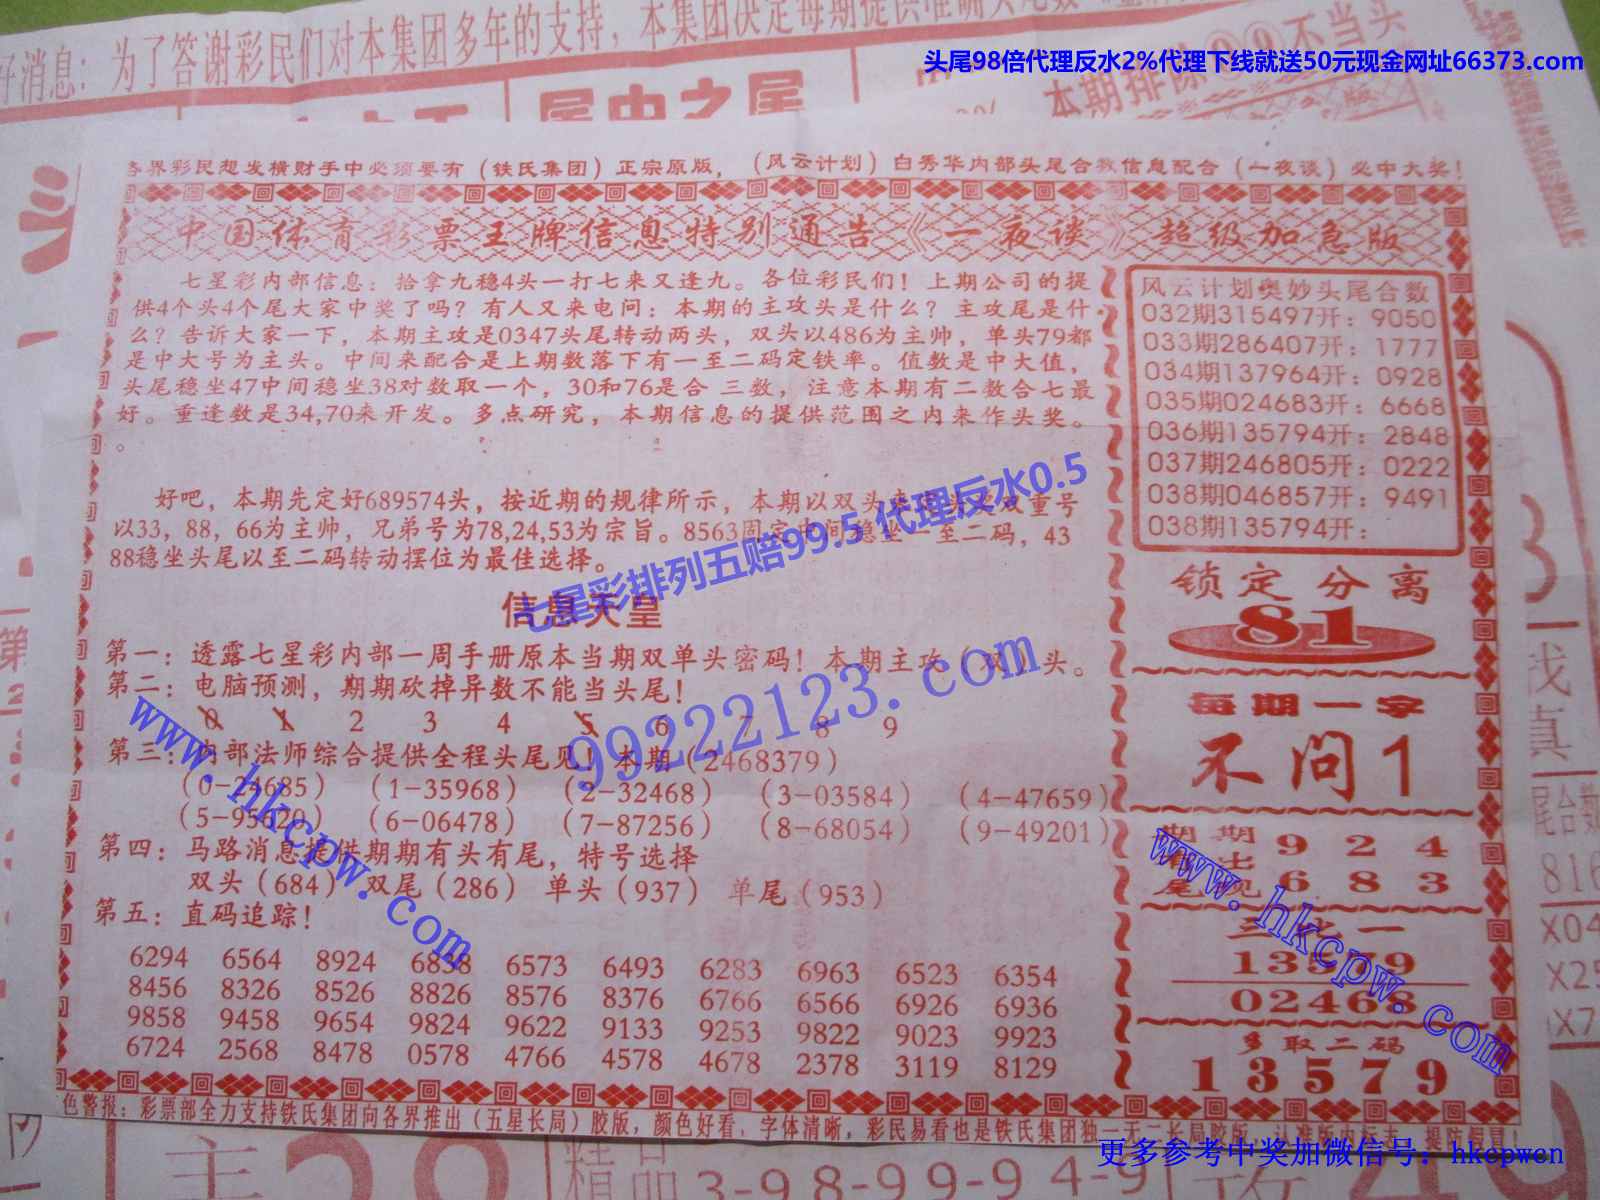 好消息：为了答谢彩民们对本集团多年的支持，本集团决定每期提供准确头尾数
头尾98倍代理反水2%代理下线就送50元现金网址66373.com
不当头
尾中之尾
本期排除
各界彩民想发横财手中必须要有（铁氏集团）正宗原版，（风云计划）白秀华内部头尾合数信息配合（一夜谈）必中大奖！
中国体育彩票王牌信息特别通告《一夜谈》超级加急版
七星彩内部信息：拾拿九稳4头一打七来又逢九。各位彩民们！上期公司的提
供4个头4个尾大家中奖了吗？有人又来电问：本期的主攻头是什么？主攻尾是什
么？告诉大家一下，本期主攻是0347头尾转动两头，双头以486为主帅，单头79都
是中大号为主头。中间来配合是上期数落下有一至二码定铁率。值数是中大值，
头尾稳坐47中间稳坐38对数取一个，30和76是合 三数，注意本期有二数合七最
好。重逢数是34,70来开发。多点研究，本期信息的提供范围之内来作头奖。
。
好吧，本期先定好689574头，按近期的规律所示，本期以双头来 双重号
以33，88，66为主帅，兄弟号为78,24,53为宗旨。8563固定中间稳坐一至二码，43
88稳坐头尾以至二码转动摆位为最佳选择。
七星彩排列五赔99.5 代理反水0.5
信息天皇
第一：透露七星彩内部一周手册原本当期双单头密码！本期主攻（双）头。
第二：电脑预测，期期砍掉异数不能当头尾！
0 1 2 3 4 5 6 7 8 9
第三：内部法师综合提供全程头尾见！本期（2468379）
（0-24685） （1-35968） （2-32468） （3-03584） （4-47659）
（5-95620） （6-06478） （7-87256） （8-68054） （9-49201）
第四：马路消息提供期期有头有尾，特号选择
双头（684） 双尾（286） 单头（937） 单尾（953）
第五：直码追踪！
6294 6564 8924 6838 6573 6493 6283 6963 6523 6354
8456 8326 8526 8826 8576 8376 6766 6566 6926 6936
9858 9458 9654 9824 9622 9133 9253 9822 9023 9923
6724 2568 8478 0578 4766 4578 4678 2378 3119 8129
99222123.com
www.hkcpw.com
风云计划奥妙头尾合数
032期315497开：9050
033期286407开：1777
034期137964开：0928
035期024683开：6668
036期135794开：2848
037期246805开：0222
038期046857开：9491
038期135794开：
锁定分离
81
每期一字
不问1
期期 9 2 4
尾 6 8 3
www.hkcpw.com
13579
02468
多取二码
13579
色警报：彩票部全力支持铁氏集团向各界推出（五星长局）胶版，颜色好看，字体清晰，彩民易看也是铁氏集团独一无二长局胶版，
更多参考中奖加微信号：hkcpwcn
找
真
尾合数
816
X04
X25
精品
3-98-99-94-9